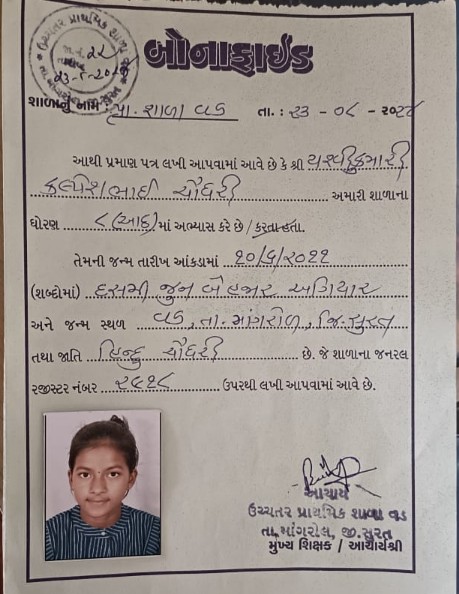 ઉચ્ચતર પ્રાથમિક શાળા વડ
જા.નં. ૨૨
તારીખ
તા. માંગરોલ, જી. સુરત
બોનાફાઈડ
શાળાનું નામ : પ્રા. શાળા વડ તા. : ૨૩ - ૦૮ - ૨૦૨૪
આથી પ્રમાણ પત્ર લખી આપવામાં આવે છે કે શ્રી યશ્વીકુમારી
કલ્પેશભાઈ ચૌધરી અમારી શાળાના
ધોરણ ૮ (આઠ) માં અભ્યાસ કરે છે / કરતા હતા.
તેમની જન્મ તારીખ આંકડામાં ૧૦/૬/૨૦૧૧
(શબ્દોમાં) દસમી જુન બે હજાર અગિયાર
અને જન્મ સ્થળ વડ, તા. માંગરોળ, જિ. સુરત
તથા જાતિ હિન્દુ ચૌધરી છે. જે શાળાના જનરલ
રજીસ્ટર નંબર ઉપરથી લખી આપવામાં આવે છે.
આચાર્ય
ઉચ્ચતર પ્રાથમિક શાળા વડ
તા. માંગરોલ, જી. સુરત
મુખ્ય શિક્ષક / આચાર્યશ્રી